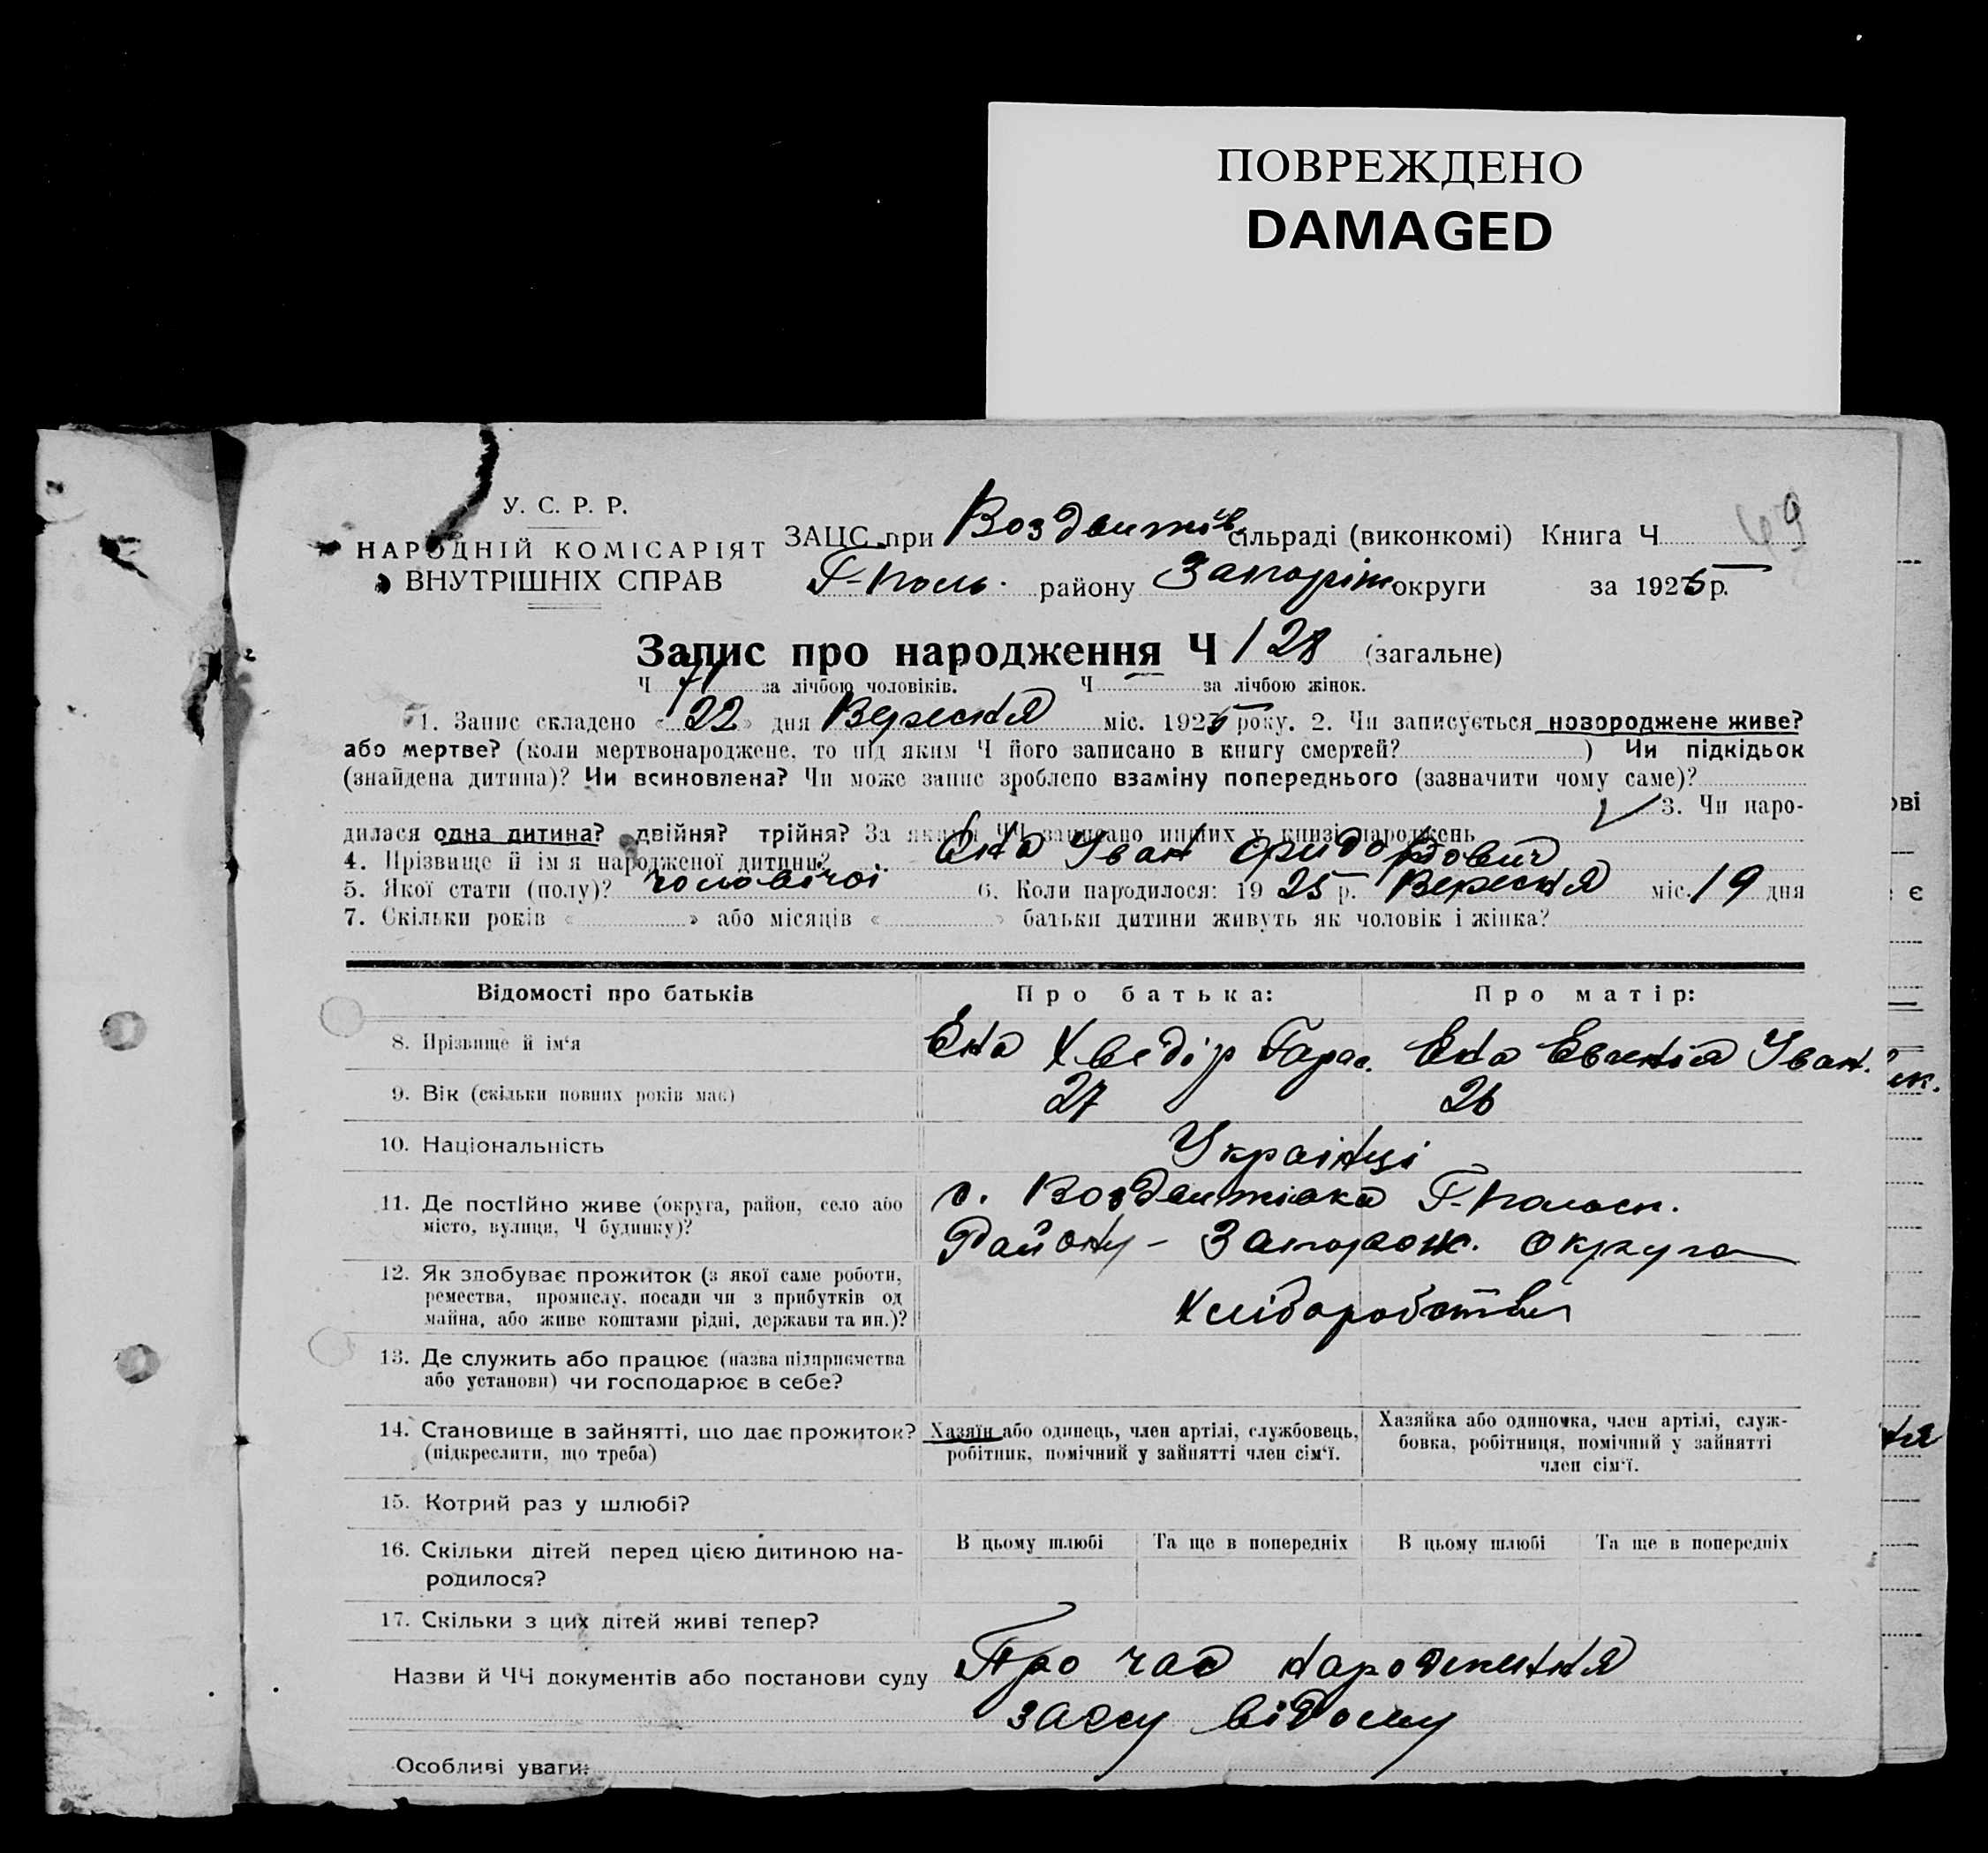 ПОВРЕЖДЕНО
DAMAGED
У. С. Р. Р.
НАРОДНІЙ КОМІСАРІЯТ
ВНУТРІШНІХ СПРАВ
ЗАЦС при Воздвижів. сільраді (виконкомі) Книга Ч 49
Г-Поль. району Запоріж округи за 1925 р.
Запис про народження Ч 128 (загальне)
Ч 71 за лічбою чоловіків. Ч за лічбою жінок.
1. Запис складено «22» дня Вересня міс. 1925 року. 2. Чи записується новороджене живе?
або мертве? (коли мертвонароджене, то під яким Ч його записано в книгу смертей? ) Чи підкідьок
(знайдена дитина)? Чи всиновлена? Чи може запис зроблено взаміну попереднього (зазначити чому саме)?
3. Чи наро-
дилася одна дитина? двійня? трійня? За якими ЧЧ записано инших у книзі народжень
4. Прізвище й ім я народженої дитини? Єна Іван
5. Якої стати (полу)? чоловічої 6. Коли народилося: 19 25 р. Вересня міс. 19 дня
7. Скільки років « » або місяців « » батьки дитини живуть як чоловік і жінка?
Відомості про батьків Про батька: Про матір:
8. Прізвище й ім‘я Єна Хведір Гарас. Єна Євгенія Іван.
9. Вік (скільки повних років має) 27 26
10. Національність Українці
11. Де постійно живе (округа, район, село або
місто, вулиця, Ч будинку)?
с. Воздвижівка Г-Польск.
Району - Запорож. округа
12. Як здобуває прожиток (з якої саме роботи,
ремества, промислу, посади чи з прибутків од
майна, або живе коштами рідні, держави та ин.)?
Хліборобством
13. Де служить або працює (назва підприємства
або установи) чи господарює в себе?
14. Становище в зайнятті, що дає прожиток?
(підкреслити, що треба)
Хазяїн або одинець, член артілі, службовець,
робітник, помічний у зайнятті член сім‘ї.
Хазяйка або одиночка, член артілі, служ-
бовка, робітниця, помічний у зайнятті
член сім‘ї.
15. Котрий раз у шлюбі?
16. Скільки дітей перед цією дитиною на-
родилося?
В цьому шлюбі Та ще в попередніх В цьому шлюбі Та ще в попередніх
17. Скільки з цих дітей живі тепер?
Назви й ЧЧ документів або постанови суду Про час народження
засу відому
Особливі уваги: